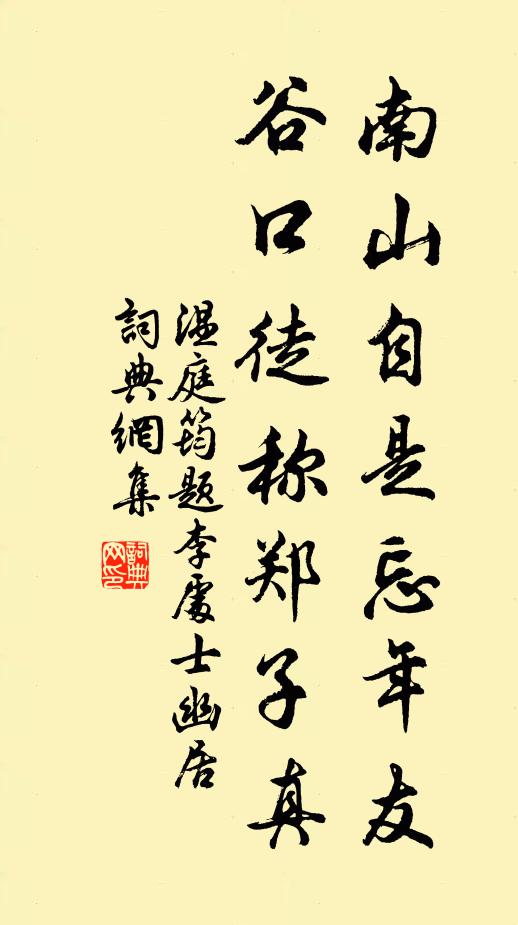 南山自是忘年友
谷口徒称郑子真
温庭筠题李處士幽居
詞典網集
詞典网印